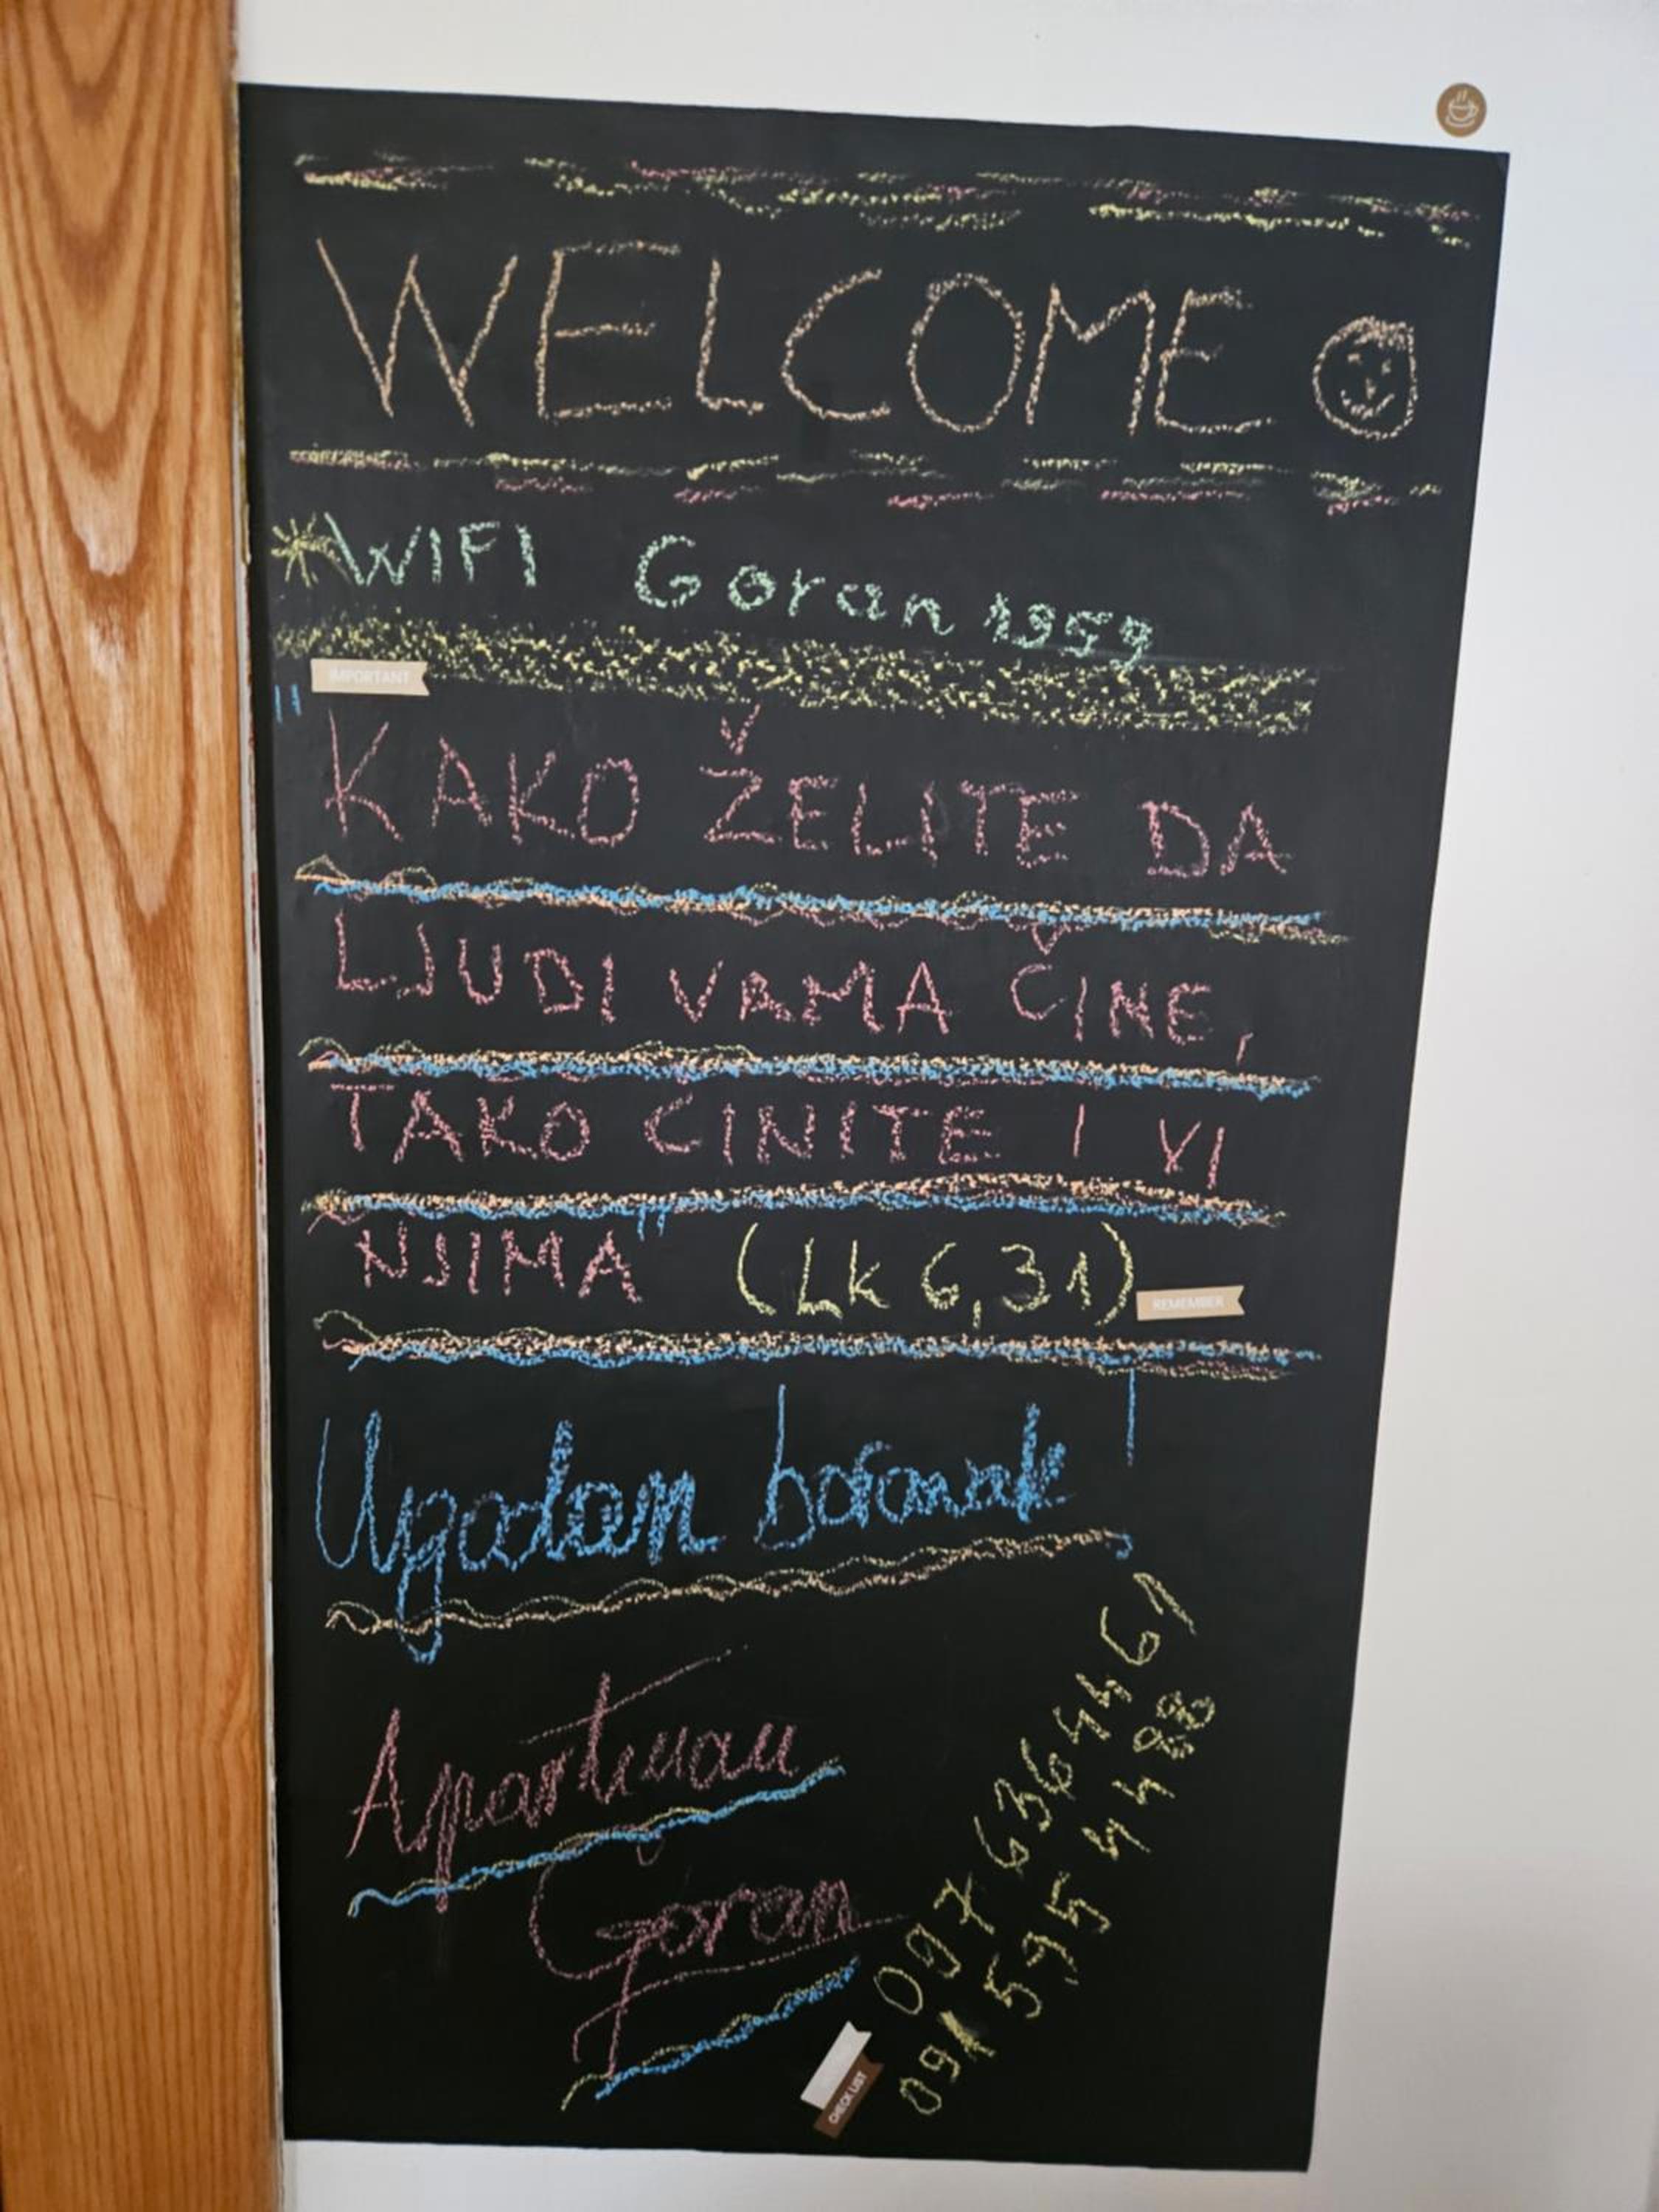 WELCOME
WIFI Goran1959
IMPORTANT
"KAKO ŽELITE DA
LJUDI VAMA ČINE,
TAKO CINITE I VI
NJIMA" (Lk 6,31)
REMEMBER
Ugodan boravak!
Apartman
Goran
097 6364461
091 595 4488
CHECK LIST